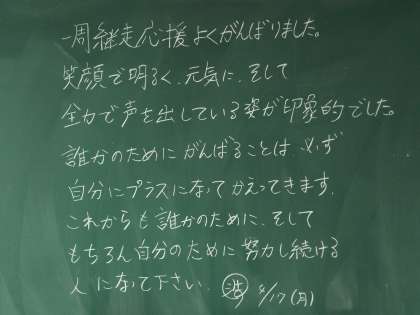 一周継走応援よくがんばりました。
笑顔で明るく、元気に、そして
全力で声を出している姿が印象的でした。
誰かのためにがんばることは、必ず
自分にプラスになってかえってきます。
これからも誰かのために、そして
もちろん自分のために努力し続ける
人になって下さい。 /17(月)